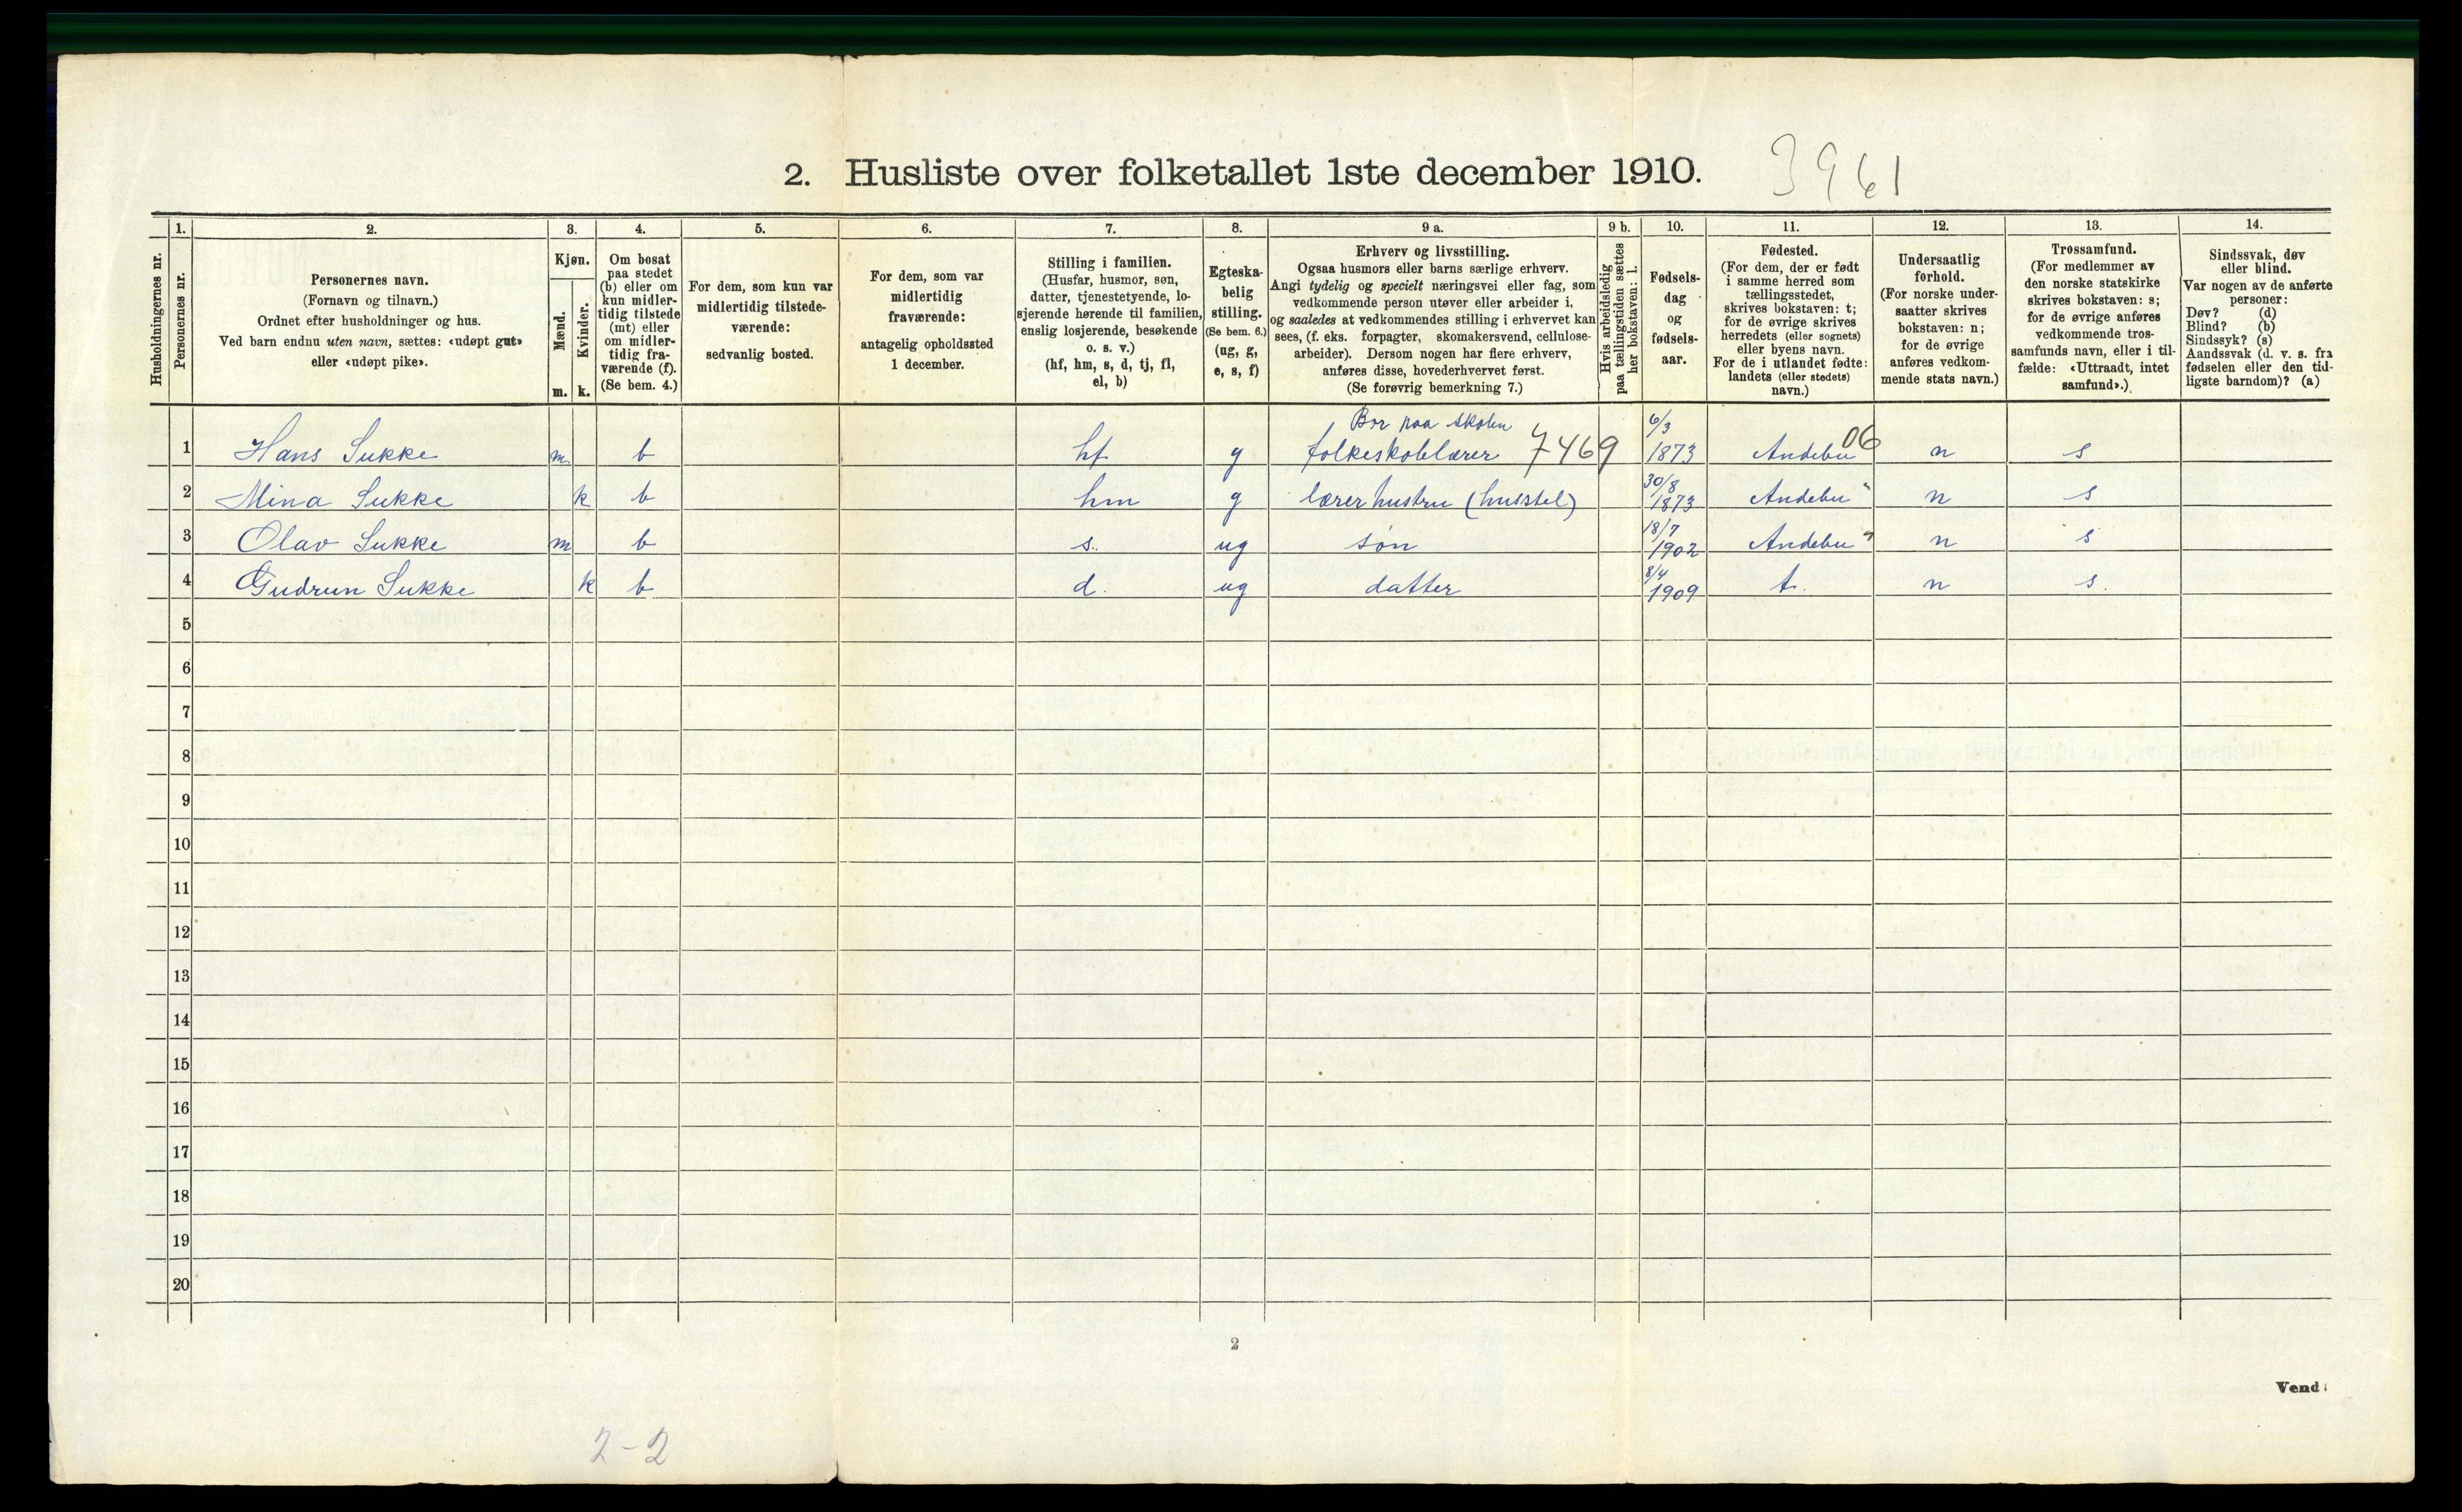 2. Husliste over folketallet 1ste december 1910. 3961
Husholdningernes nr.
1. Personernes nr.
2. Personernes navn.
(Fornavn og tilnavn.)
Ordnet efter husholdninger og hus.
Ved barn endnu uten navn, sættes: «udøpt gut»
eller «udøpt pike».
3. Kjøn.
Mænd. m.
Kvinder. k.
4. Om bosat
paa stedet
(b) eller om
kun midler-
tidig tilstede
(mt) eller
om midler-
tidig fra-
værende (f).
(Se bem. 4.)
5. For dem, som kun var
midlertidig tilstede-
værende:
sedvanlig bosted.
6. For dem, som var
midlertidig
fraværende:
antagelig opholdssted
1 december.
7. Stilling i familien.
(Husfar, husmor, søn,
datter, tjenestetyende, lo-
sjerende hørende til familien,
enslig losjerende, besøkende
o. s. v.)
(hf, hm, s, d, tj, fl,
el, b)
8. Egteska-
belig
stilling.
(Se bem. 6.)
(ug, g,
e, s, f)
9 a. Erhverv og livsstilling.
Ogsaa husmors eller barns særlige erhverv.
Angi tydelig og specielt næringsvei eller fag, som
vedkommende person utøver eller arbeider i,
og saaledes at vedkommendes stilling i erhvervet kan
sees, (f. eks. forpagter, skomakersvend, cellulose-
arbeider). Dersom nogen har flere erhverv,
anføres disse, hovederhvervet først.
(Se forøvrig bemerkning 7.)
9 b. Hvis arbeidsledig
paa tællingstiden sættes
her bokstaven: l.
10. Fødsels-
dag
og
fødsels-
aar.
11. Fødested.
(For dem, der er født
i samme herred som
tællingsstedet,
skrives bokstaven: t;
for de øvrige skrives
herredets (eller sognets)
eller byens navn.
For de i utlandet fødte:
landets (eller stedets)
navn.)
12. Undersaatlig
forhold.
(For norske under-
saatter skrives
bokstaven: n;
for de øvrige
anføres vedkom-
mende stats navn.)
13. Trossamfund.
(For medlemmer av
den norske statskirke
skrives bokstaven: s;
for de øvrige anføres
vedkommende tros-
samfunds navn, eller i til-
fælde: «Uttraadt, intet
samfund».)
14. Sindssvak, døv
eller blind.
Var nogen av de anførte
personer:
Døv? (d)
Blind? (b)
Sindssyk? (s)
Aandssvak (d. v. s. fra
fødselen eller den tid-
ligste barndom)? (a)
Bor paa skolen 6/3
1 Hans Sukke m. b hf g folkeskolelærer 7469 1873 Andebu 06 n s
2 Mina Sukke k b hm g lærerhustru (husstel) 30/8 1873 Andebu " n s
3 Olav Sukke m b s. ug søn 18/7 1902 Andebu " n s
4 Gudrun Sukke k b d. ug datter 8/4 1909 t. n s.
5
6
7
8
9
10
11
12
13
14
15
16
17
18
19
20
2
Vend
2-2